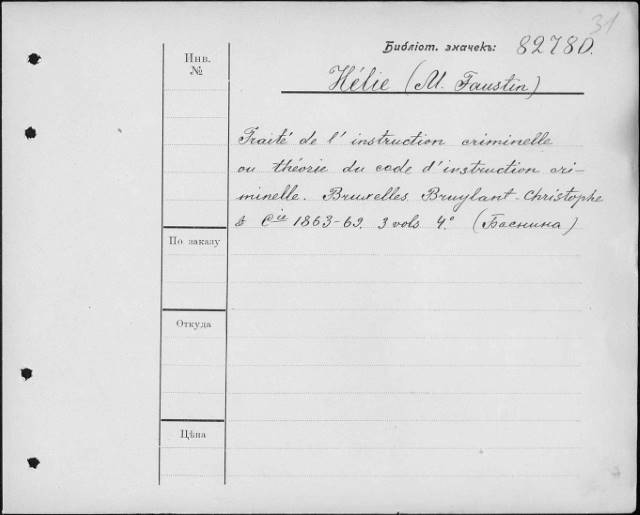 31
Библіот. значекъ: 82780.
Инв.
№
Hélie (M. Faustin)
Traité de l'instruction criminelle
ou théorie du code d'instruction cri-
minelle. Bruxelles. Bruylant-Christophe
& Cie 1863-69. 3 vols 4.º (Баснина)
По заказу
Откуда
Цѣна